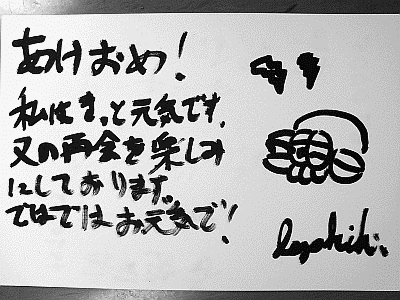 あけおめ!
私はきっと元気です。
又の再会を楽しみ
にしております。
ではではお元気で!